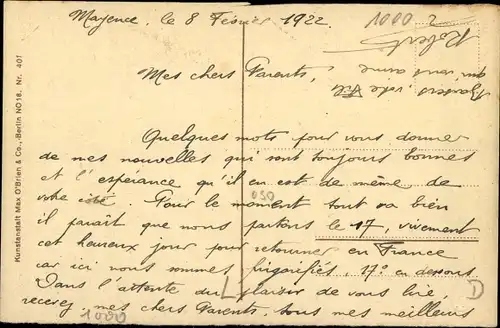 Mayence, le 8 Février 1922
1000
2
Mes chers Parents,
Quelques mots pour vous donner
de mes nouvelles qui sont toujours bonnes
et l'espérance qu'il en est de même de
votre côté. Pour le moment tout va bien
il paraît que nous partons le 17, vivement
cet heureux jour pour retourner en France
car ici nous sommes frigorifiés, 17° en dessous
Dans l'attente du plaisir de vous lire
recevez mes chers Parents, tous mes meilleurs
baisers votre Fils
qui vous aime
Robert
050
L
D
1000
Kunstanstalt Max O'Brien & Co., Berlin NO 18. Nr. 401